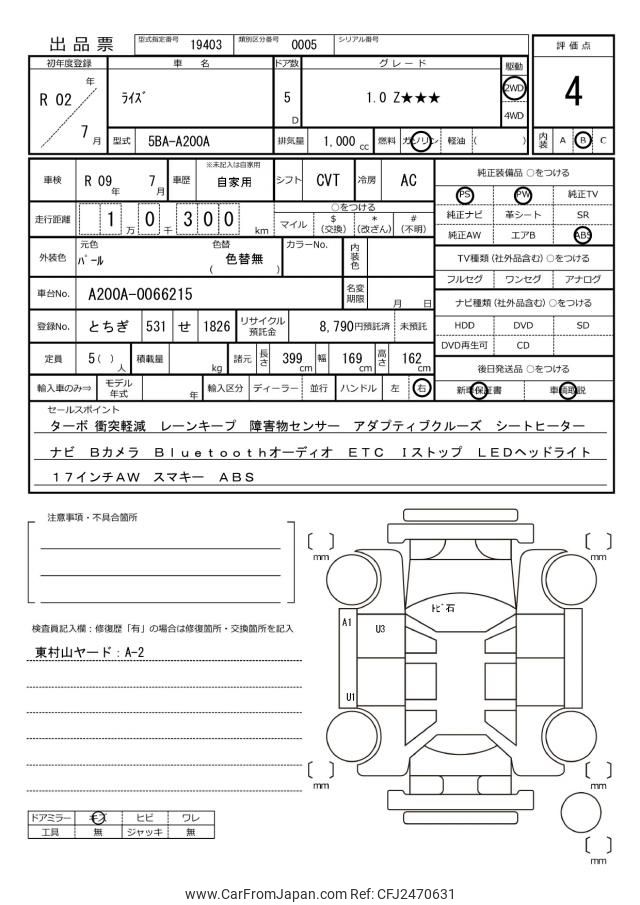 出品票 型式指定番号 19403 類別区分番号 0005 シリアル番号
評価点
4
内装 A B C
初年度登録 車名 ドア数 グレード 駆動
R 02 年 7 月
ライズ 5 D 1.0 Z★★★ 2WD 4WD
型式 5BA-A200A 排気量 1,000 cc 燃料 ガソリン 軽油 ( )
車検 R 09 年 7 月 車歴 ※未記入は自家用 自家用 シフト CVT 冷房 AC
走行距離 1 万 0 千 3 0 0 km
○をつける
マイル $ (交換) * (改ざん) # (不明)
外装色 元色 パール 色替 ( 色替無 ) カラーNo. 内装色
車台No. A200A-0066215 名変期限 月 日
登録No. とちぎ 531 せ 1826 リサイクル預託金 8,790円預託済 未預託
定員 5 ( ) 人 積載量 kg 諸元 長さ 399 cm 幅 169 cm 高さ 162 cm
輸入車のみ⇒ モデル年式 年 輸入区分 ディーラー 並行 ハンドル 左 右
純正装備品 ○をつける
PS PW 純正TV
純正ナビ 革シート SR
純正AW エアB ABS
TV種類 (社外品含む) ○をつける
フルセグ ワンセグ アナログ
ナビ種類 (社外品含む) ○をつける
HDD DVD SD
DVD再生可 CD
後日発送品 ○をつける
新車保証書 車輌取説
セールスポイント
ターボ 衝突軽減 レーンキープ 障害物センサー アダプティブクルーズ シートヒーター
ナビ Bカメラ Bluetoothオーディオ ETC Iストップ LEDヘッドライト
17インチAW スマキー ABS
注意事項・不具合箇所
検査員記入欄：修復歴「有」の場合は修復箇所・交換箇所を記入
東村山ヤード：A-2
mm
mm
トビ石
A1
U3
U1
mm
mm
mm
ドアミラー キズ ヒビ ワレ
工具 無 ジャッキ 無
www.CarFromJapan.com Ref: CFJ2470631